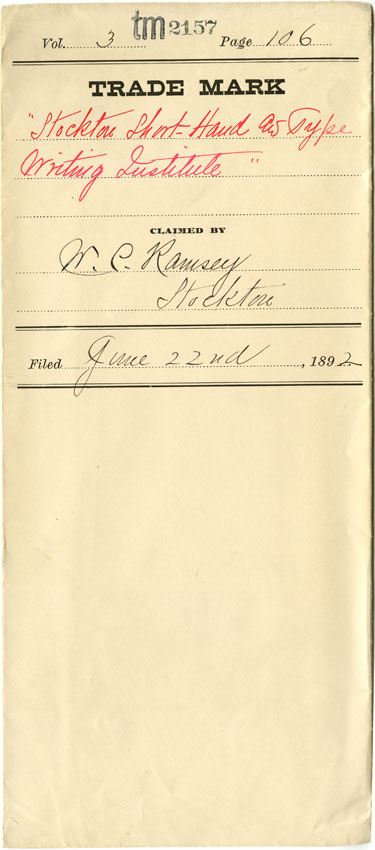 tm 2157
Vol. 3 Page 106
TRADE MARK
"Stockton Short-Hand and Type
Writing Institute"
CLAIMED BY
W. C. Ramsey
Stockton
Filed June 22nd, 1892